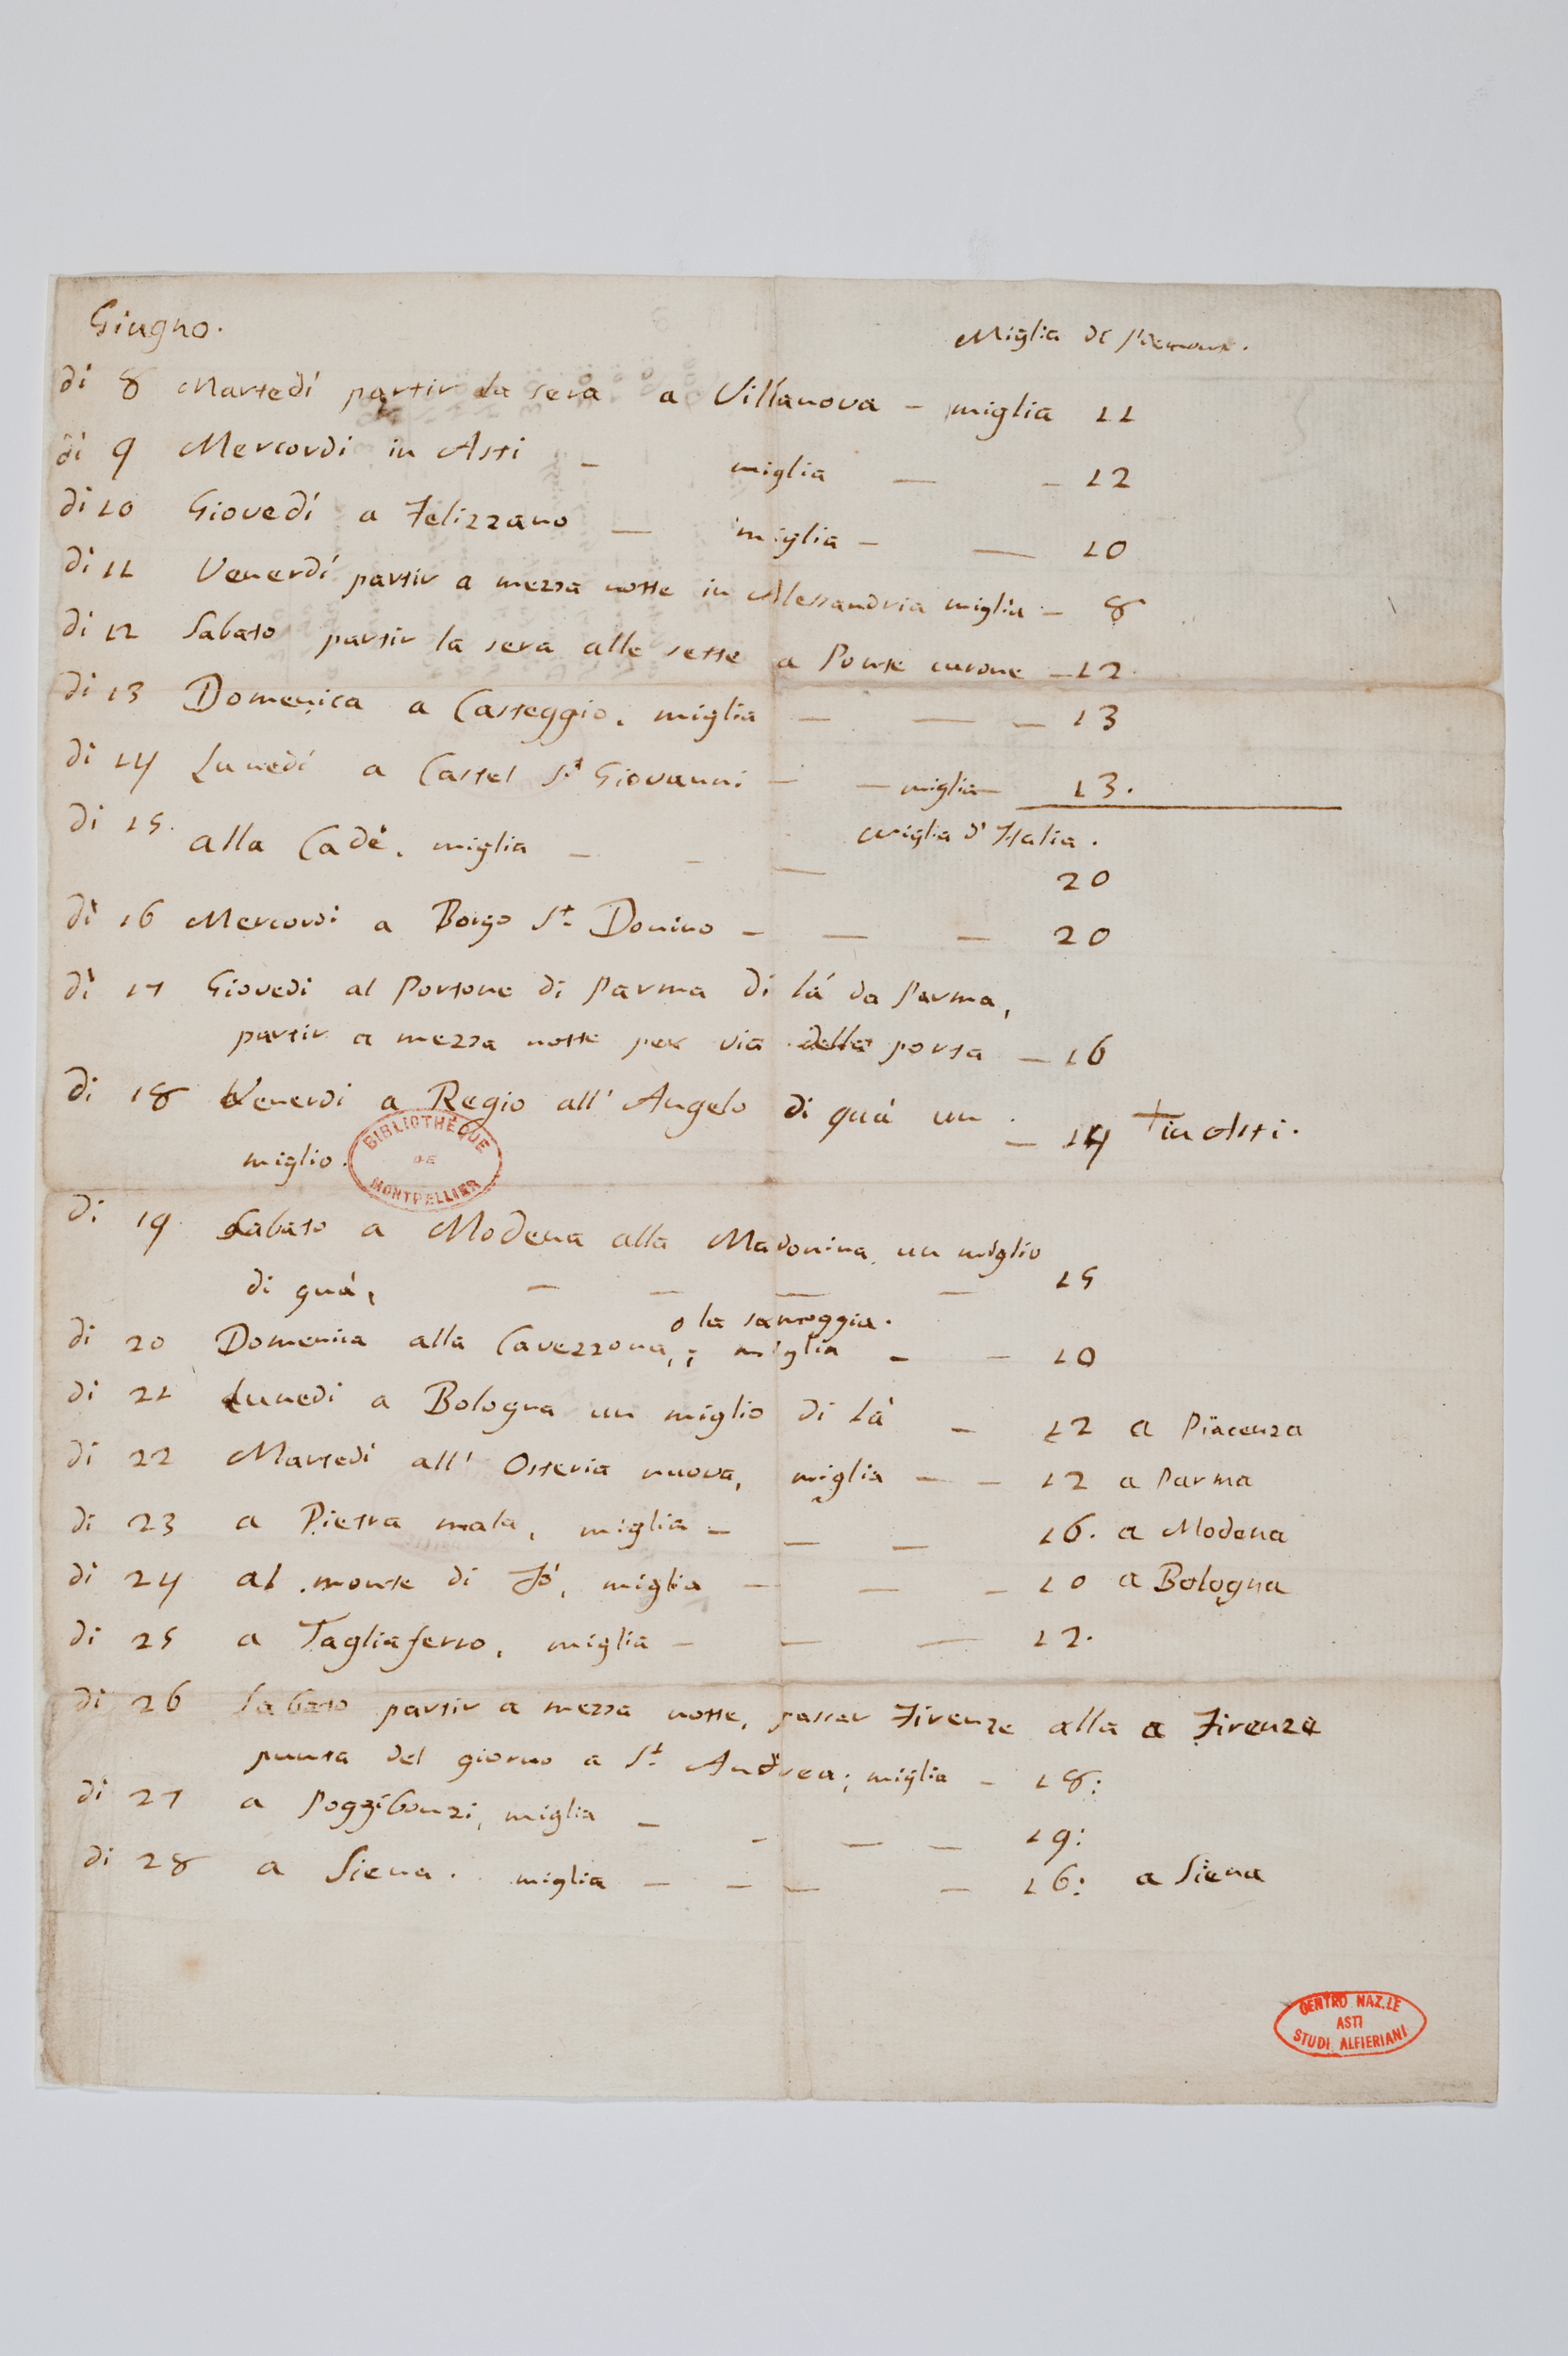 Giugno.
Miglia di Piemonte.
di 8 Martedí partir la sera a Villanova - miglia 11
di 9 Mercordi in Asti - miglia — - 12
di 10 Giovedí a Felizzano — miglia - — 10
di 11 Venerdí partir a mezza notte in Alessandria miglia - 8
di 12 Sabato partir la sera alle sette a Ponte curone - 12.
di 13 Domenica a Casteggio, miglia — — — 13
di 14 Lunedí a Castel St. Giovanni - — miglia — 13.
miglia d'Italia.
di 15. alla Cadè, miglia — - — 20
di 16 Mercordi a Borgo St. Donino - — — 20
di 17 Giovedi al Portone di Parma di lá da Parma,
partir a mezza notte per via della porta — 16
di 18 Venerdi a Regio all' Angelo di quá un — 14 + in Asti.
miglio.
di 19 Sabato a Modena alla Madonina, un miglio
di quá, — — — — 15
o la samoggia.
di 20 Domenica alla Cavezzona,; miglia - - 10
di 21 Lunedi a Bologna un miglio di Là - 12 a Piacenza
di 22 Martedi all' Osteria nuova, miglia — - 12 a Parma
di 23 a Pietra mala, miglia — — — 16. a Modena
di 24 al monte di Fó, miglia — — - 10 a Bologna
di 25 a Tagliaferro, miglia — — — 12.
di 26 Sabato partir a mezza notte, passar Firenze alla a Firenze
punta del giorno a St. Andrea; miglia - 18:
di 27 a Poggibonzi, miglia — - — — 19:
di 28 a Siena. miglia — — — — 16: a Siena
BIBLIOTHÈQUE
DE
MONTPELLIER
CENTRO NAZ.LE
ASTI
STUDI ALFIERIANI